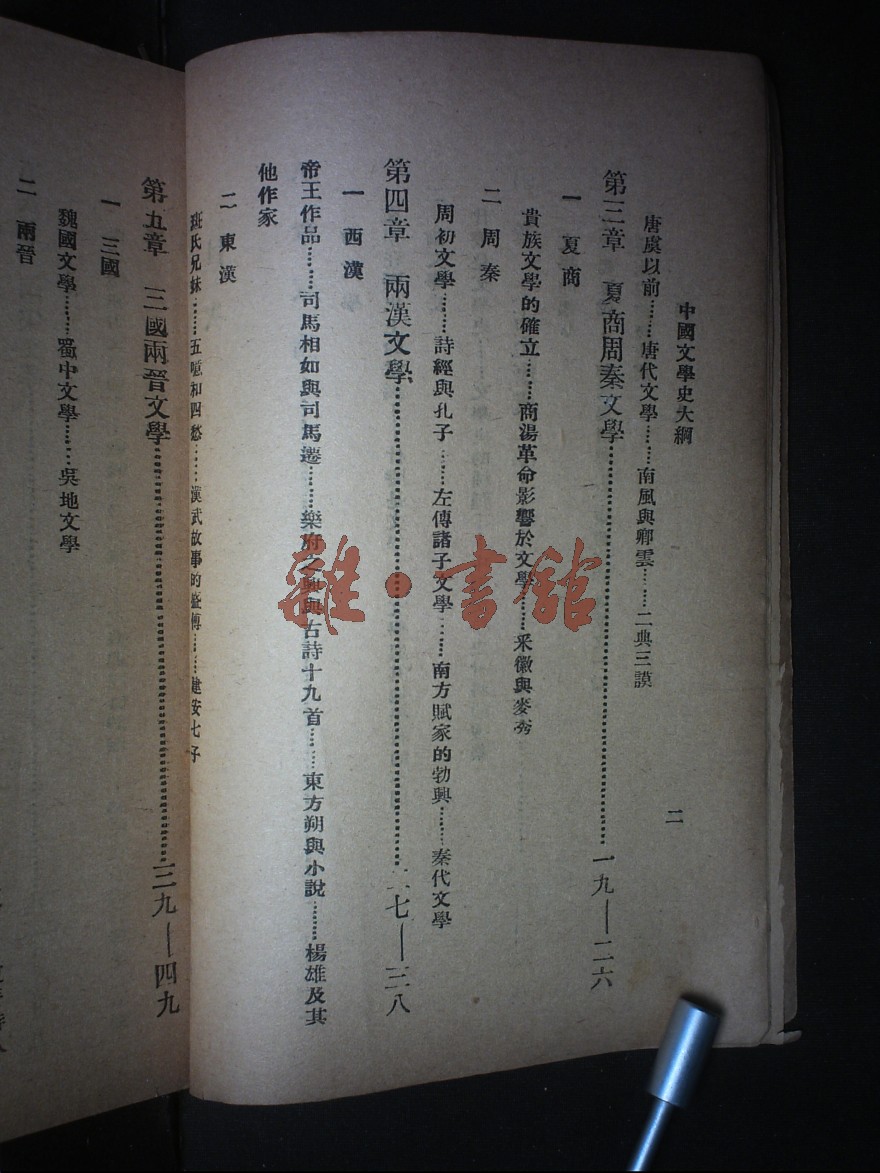 中國文學史大綱
二
唐虞以前………唐代文學………南風與卿雲………二典三謨
第三章 夏商周秦文學………一九—二六
一 夏商
貴族文學的確立………商湯革命影響於文學………采徽與麥秀
二 周秦
周初文學………詩經與孔子………左傳諸子文學………南方賦家的勃興………秦代文學
第四章 兩漢文學………七—三八
一 西漢
帝王作品………司馬相如與司馬遷………樂府之興與古詩十九首………東方朔與小說………楊雄及其
他作家
二 東漢
班氏兄妹………五噫和四愁………漢武故事的盛傳………建安七子
第五章 三國兩晉文學………三九—四九
一 三國
魏國文學………蜀中文學………吳地文學
二 兩晉
雜·書館